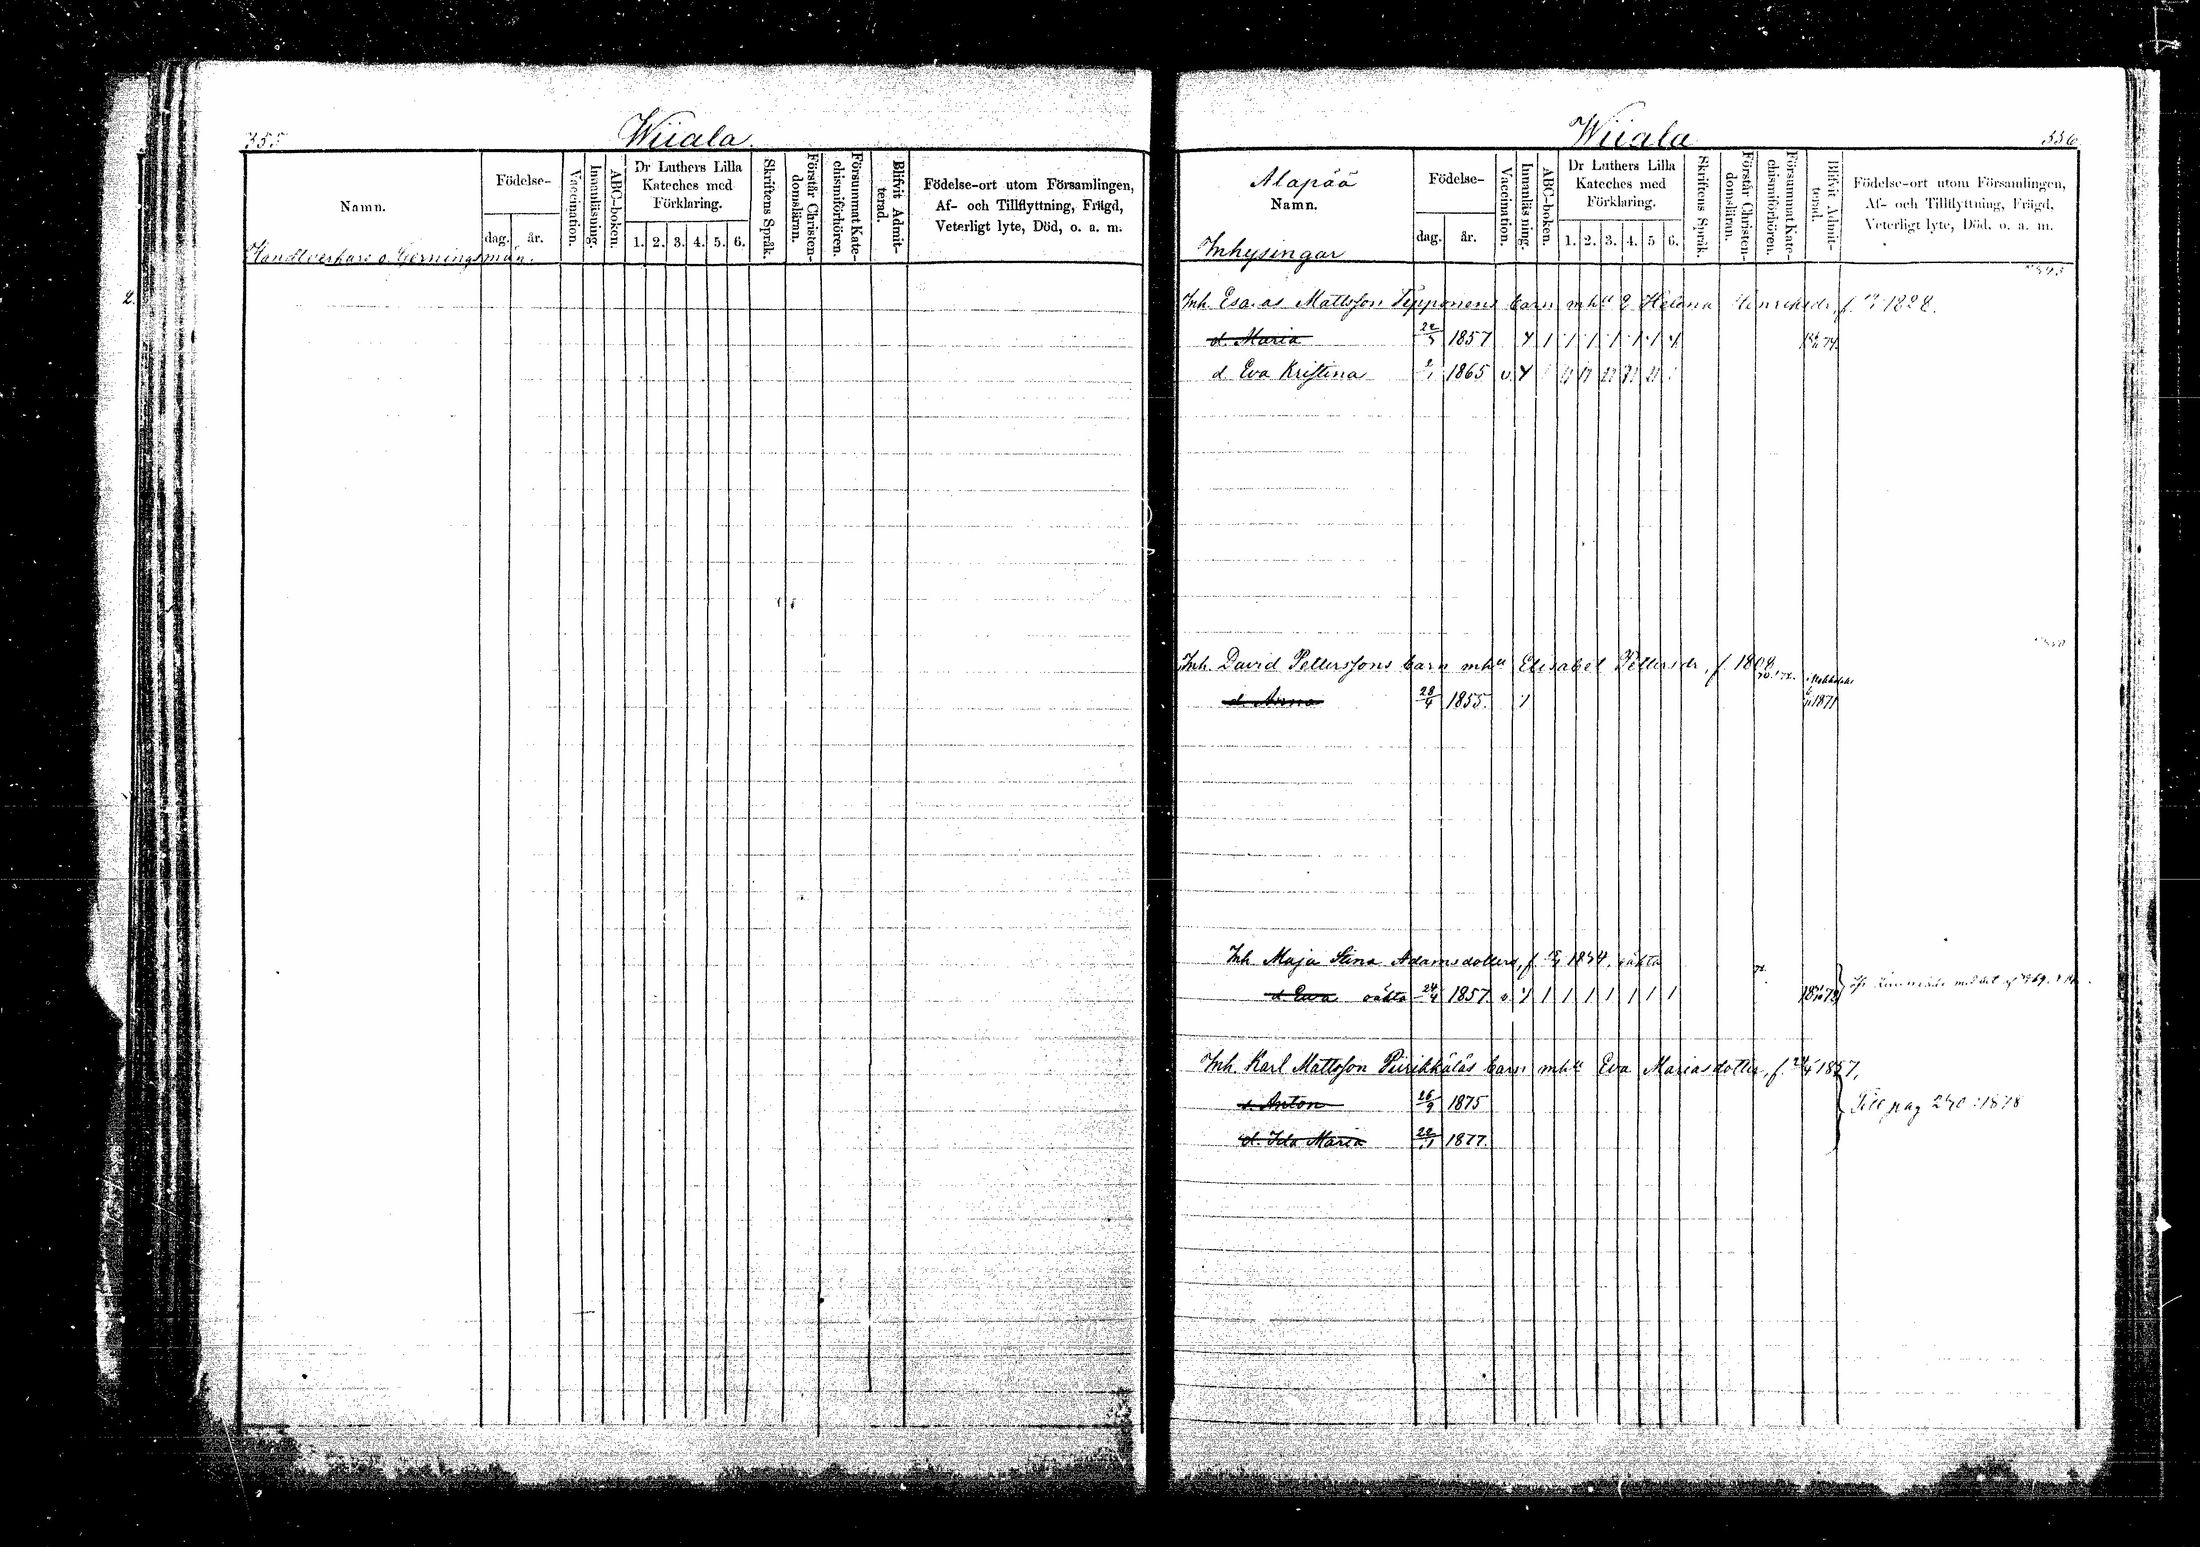 355
Wiiala.
Namn.
Födelse-
dag.
år.
Vaccination.
Innanläsning.
ABC-boken.
Dr Luthers Lilla
Kateches med
Förklaring.
1. 2. 3. 4. 5. 6.
Skriftens Språk.
Förstår Christen-
domsläran.
Försummat Kate-
chismiförhören.
Blifvit Admit-
terad.
Födelse-ort utom Församlingen,
Af- och Tillflyttning, Frägd,
Veterligt lyte, Död, o. a. m.
Handtverkare o. Gerningsmän.
2.
Wiiala
336
Alapää
Namn.
Födelse-
dag.
år.
Vaccination.
Innanläsning.
ABC-boken.
Dr Luthers Lilla
Kateches med
Förklaring.
1. 2. 3. 4. 5 6.
Skriftens Språk.
Förstår Christen-
domsläran.
Försummat Kate-
chismiförhören.
Blifvit Admit-
terad.
Födelse-ort utom Församlingen,
Af- och Tillflyttning, Frägd,
Veterligt lyte, Död, o. a. m.
Inhysingar
Inh. Esaias Mattsson Tepponens barn mhu Helena Henriksdr, f. 1828.
d. Maria 1857
d. Eva Kristina 1865
Inh. David Petterssons barn mhu Elisabet Pettersdr, f. 1808
d. Anna 28/4 1855. 1871
Inh Maja Stina Adamsdotters, f. 1834, oäkta
d. Eva oäkta 24/4 1857.
Inh. Karl Mattsson Piirikkäläs barn mhu Eva Mariasdotter, f. 24/4 1857,
s. Anton 26/9 1875
d. Ida Maria 22/1 1877.
Till pag 240 :1878